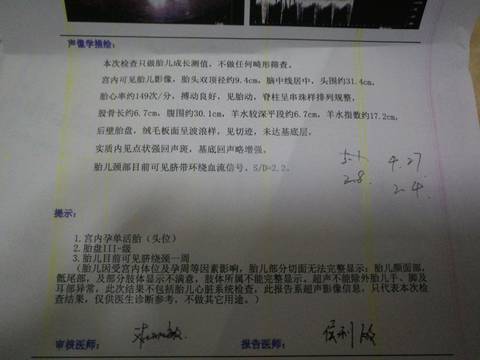 声像学描绘：
本次检查只做胎儿成长测值，不做任何畸形筛查。
宫内可见胎儿影像，胎头双顶径约9.4cm，脑中线居中，头围约31.4cm，
胎心率约149次/分，搏动良好，见胎动，脊柱呈串珠样排列规整，
股骨长约6.7cm，腹围约30.1cm，羊水较深平段约6.7cm，羊水指数约17.2cm，
后壁胎盘，绒毛板面呈波浪样，见切迹，未达基底层，
实质内见点状强回声斑，基底回声略增强。
胎儿颈部目前可见脐带环绕血流信号，S/D=2.2。
5.1 4.27
2.8. 2.4.
提示：
1.宫内孕单活胎（头位）
2.胎盘III-级
3.胎儿目前可见脐绕颈一周
（胎儿因受宫内体位及孕周等因素影响，胎儿部分切面无法完整显示；胎儿颜面部、
骶尾部、及部分肢体显示不满意，肢体所属不能完整显示。超声不能除外胎儿手、脚及
耳部异常，此次结果不包括胎儿心脏系统检查，此报告系超声影像信息，只代表本次检
查结果，仅供医生诊断参考，不做其它用途。）
审核医师： 报告医师：